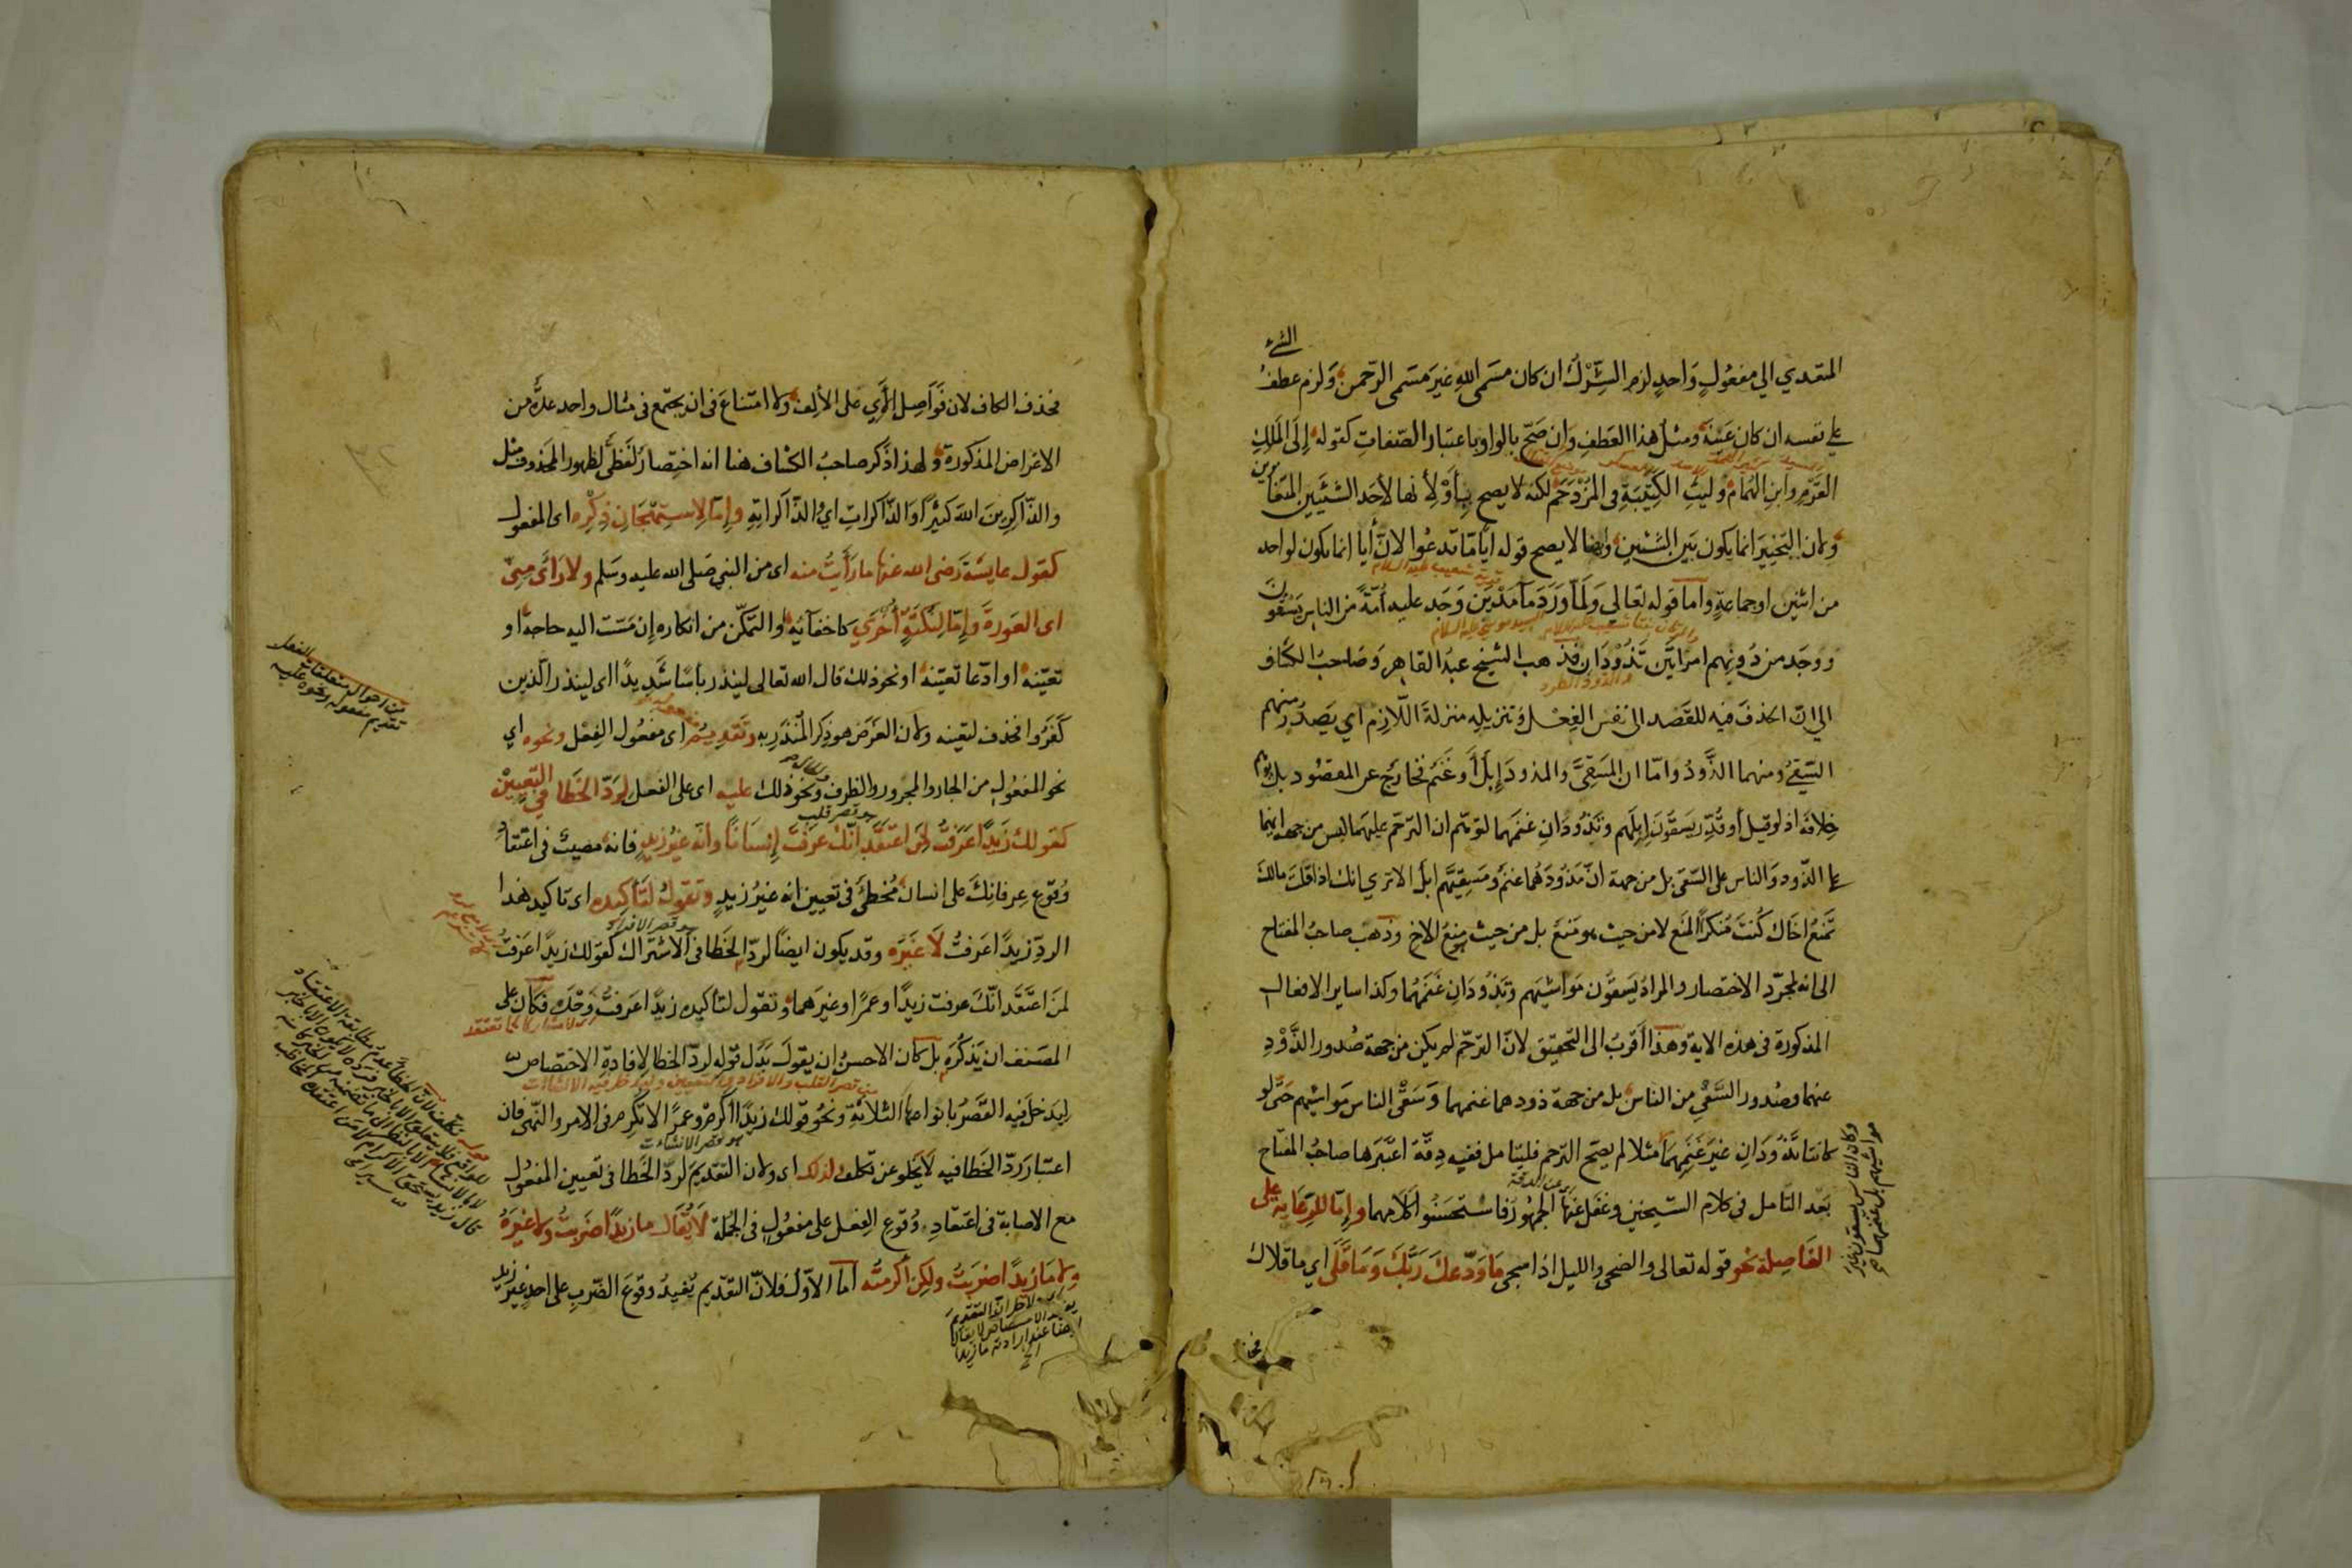 الشيء
المتعدي الى مفعول واحد لزم الشرك ان كان مسمى الله غير مسمى الرحمن ولزم عطف
على نفسه ان كان عينه ومثل هذا العطف وان صح بالواو باعتبار الصفات كقوله الى الملك
القرم وابن الهمام وليث الكتيبة في المزدحم لكنه لا يصح بأو لأنها لأحد الشيئين المتغايرين
ولان التخيير انما يكون بين الشيئين وايضا لا يصح قوله أيا ما تدعوا لان أيا انما يكون لواحد
من اثنين او جماعة واما قوله تعالى ولما ورد ماء مدين وجد عليه أمة من الناس يسقون
ووجد من دونهم امراتين تذودان فذهب الشيخ عبد القاهر وصاحب الكشاف
الى ان الحذف فيه للقصد الى نفس الفعل وتنزيله منزلة اللازم اي يصدر منهم
السقي ومنهما الذود واما ان المسقي والمذود إبل أو غنم فخارج عن المقصود بل يوهم
خلافه اذ لو قيل أو قدر يسقون ابلهم وتذودان غنمهما لتوهم ان الترحم عليهما ليس من جهة انهما
على الذود والناس على السقي بل من جهة ان مذودهما غنم ومسقيهم ابل الا ترى انك اذا قلت مالك
تمنع اخاك كنت منكرا المنع لا من حيث هو منع بل من حيث هو منع الاخ وذهب صاحب المفتاح
الى انه لمجرد الاختصار والمراد يسقون مواشيهم وتذودان غنمهما وكذا ساير الافعال
المذكورة في هذه الاية وهذا أقرب الى التحقيق لان الترحم لم يكن من جهة صدور الذود
عنهما وصدور السقي من الناس بل من جهة ذودهما غنمهما وسقي الناس مواشيهم حتى لو
كانتا تذودان غير غنمهما مثلا لم يصح الترحم فليتامل ففيه دقة اعتبرها صاحب المفتاح
بعد التامل في كلام الشيخين وغفل عنها الجمهور فاستحسنوا كلامهما وإما للرعاية على
الفاصلة نحو قوله تعالى والضحى والليل اذا سجى ما ودعك ربك وما قلى اي ما قلاك
وكان الناس يسقون غير
مواشيهم بل غنمهما صح
فحذف الكاف لان فواصل الآي على الألف ولا امتناع في ان يجتمع في مثال واحد عدة من
الاغراض المذكورة ولهذا ذكر صاحب الكشاف هنا انه اختصار لفظي لظهور المحذوف مثل
والذاكرين الله كثيرا والذاكرات اي والذاكراته وإما لاستهجان ذكره اى المفعول
كقول عايشة رضى الله عنها ما رأيت منه اى من النبي صلى الله عليه وسلم ولا رأى مني
اى العورة وإما لنكتة أخرى كاخفائه والتمكن من انكاره إن مست اليه حاجة او
تعينه او ادعا تعينه او نحو ذلك قال الله تعالى لينذر بأسا شديدا اى لينذر الذين
كفروا فحذف لتعينه ولان الغرض هو ذكر المنذر به وتقديمه اى مفعول الفعل ونحوه اي
نحو المفعول من الجار والمجرور والظرف ونحو ذلك عليه اى على الفعل لرد الخطا في التعيين
كقولك زيدا عرفت لمن اعتقد انك عرفت إنسانا وانه غير زيد فانه مصيب في اعتقاد
وقوع عرفانك على انسان مخطئ في تعيين انه غير زيد وتقول لتأكيده اى تاكيد هذا
الرد زيدا عرفت لا غيره وقد يكون ايضا لرد الخطا في الاشتراك كقولك زيدا عرفت
لمن اعتقد انك عرفت زيدا وعمرا او غيرهما وتقول لتأكيده زيدا عرفت وحده فكان على
المصنف ان يذكره بل كان الاحسن ان يقول بدل قوله لرد الخطا لإفادة الاختصاص
ليدخل فيه القصر بانواعها الثلاثة ونحو قولك زيدا أكرم وعمرا لا تكرم في الامر والنهى فان
اعتبار رد الخطا فيه لا يخلو عن تكلف لذلك اى ولان التقديم لرد الخطا في تعيين المفعول
مع الاصابة في اعتقاد وقوع الفعل على مفعول في الجملة لا يقال ما زيدا ضربت ولا غيره
ولا ما زيدا ضربت ولكن أكرمته اما الاول فلان التقديم يفيد وقوع الضرب على احد غير زيد
من احوال متعلقات الفعل
تقديم مفعوله ونحوه عليه